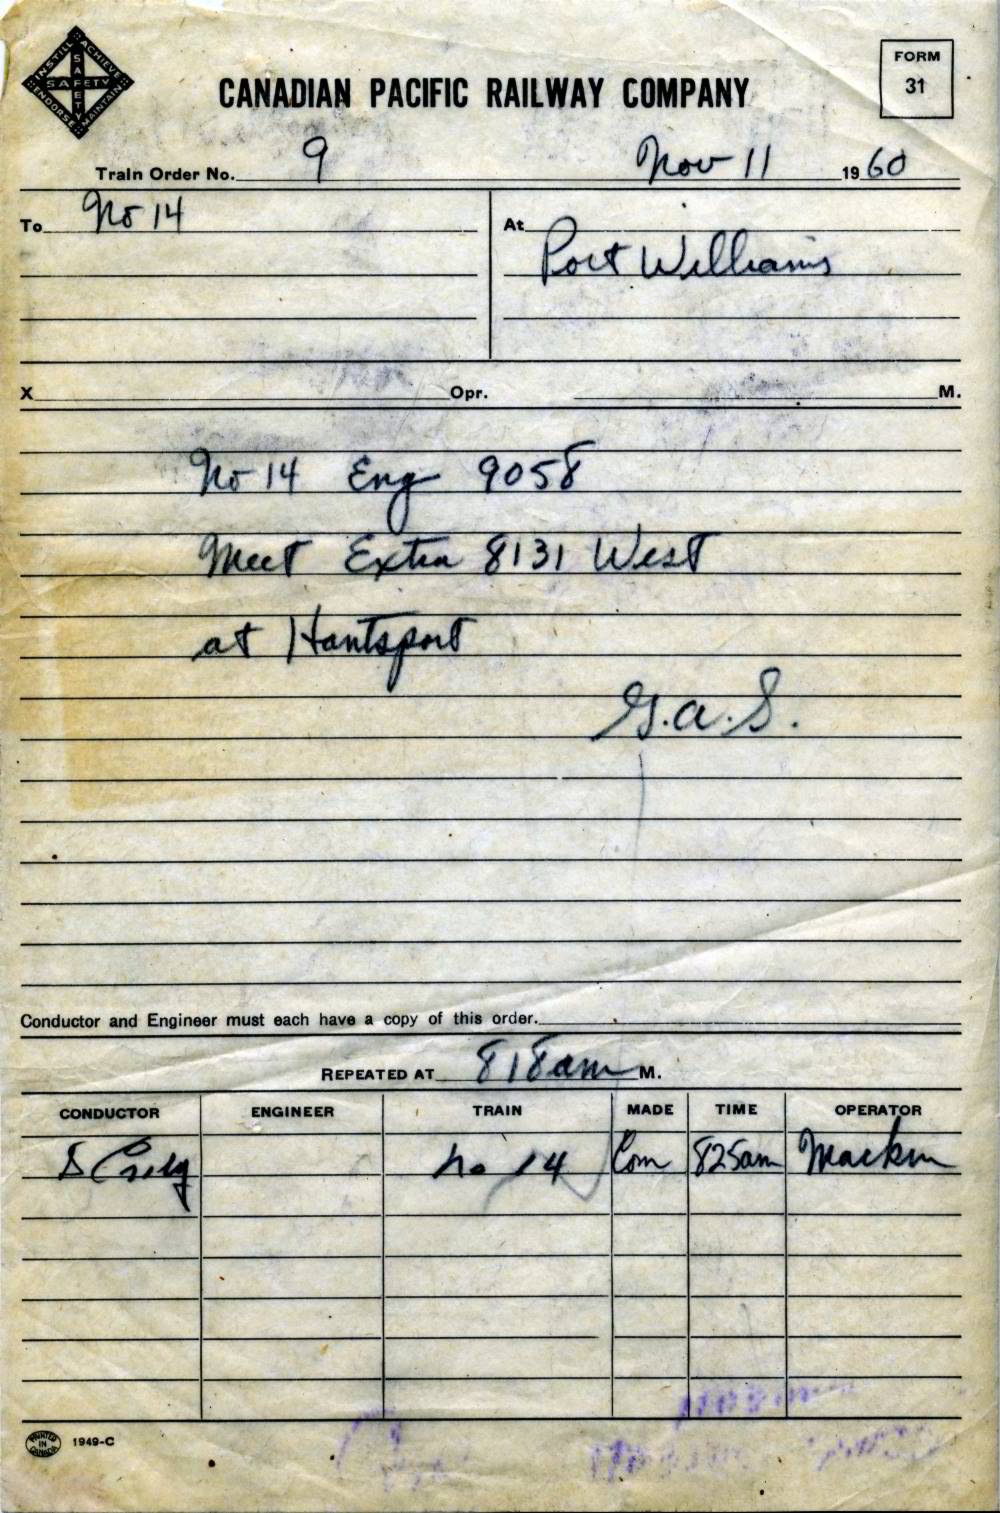 INSTILL ACHIEVE
SAFETY
SAFETY
ENDORSE MAINTAIN
CANADIAN PACIFIC RAILWAY COMPANY
FORM
31
Train Order No. 9 Nov 11 1960
To No 14 At Port Williams
X Opr. M.
No 14 Eng 9058
Meet Extra 8131 West
at Hantsport
G.A.S.
Conductor and Engineer must each have a copy of this order.
REPEATED AT 818am M.
CONDUCTOR ENGINEER TRAIN MADE TIME OPERATOR
S no 14 Com 825am
PRINTED IN CANADA 1949-C